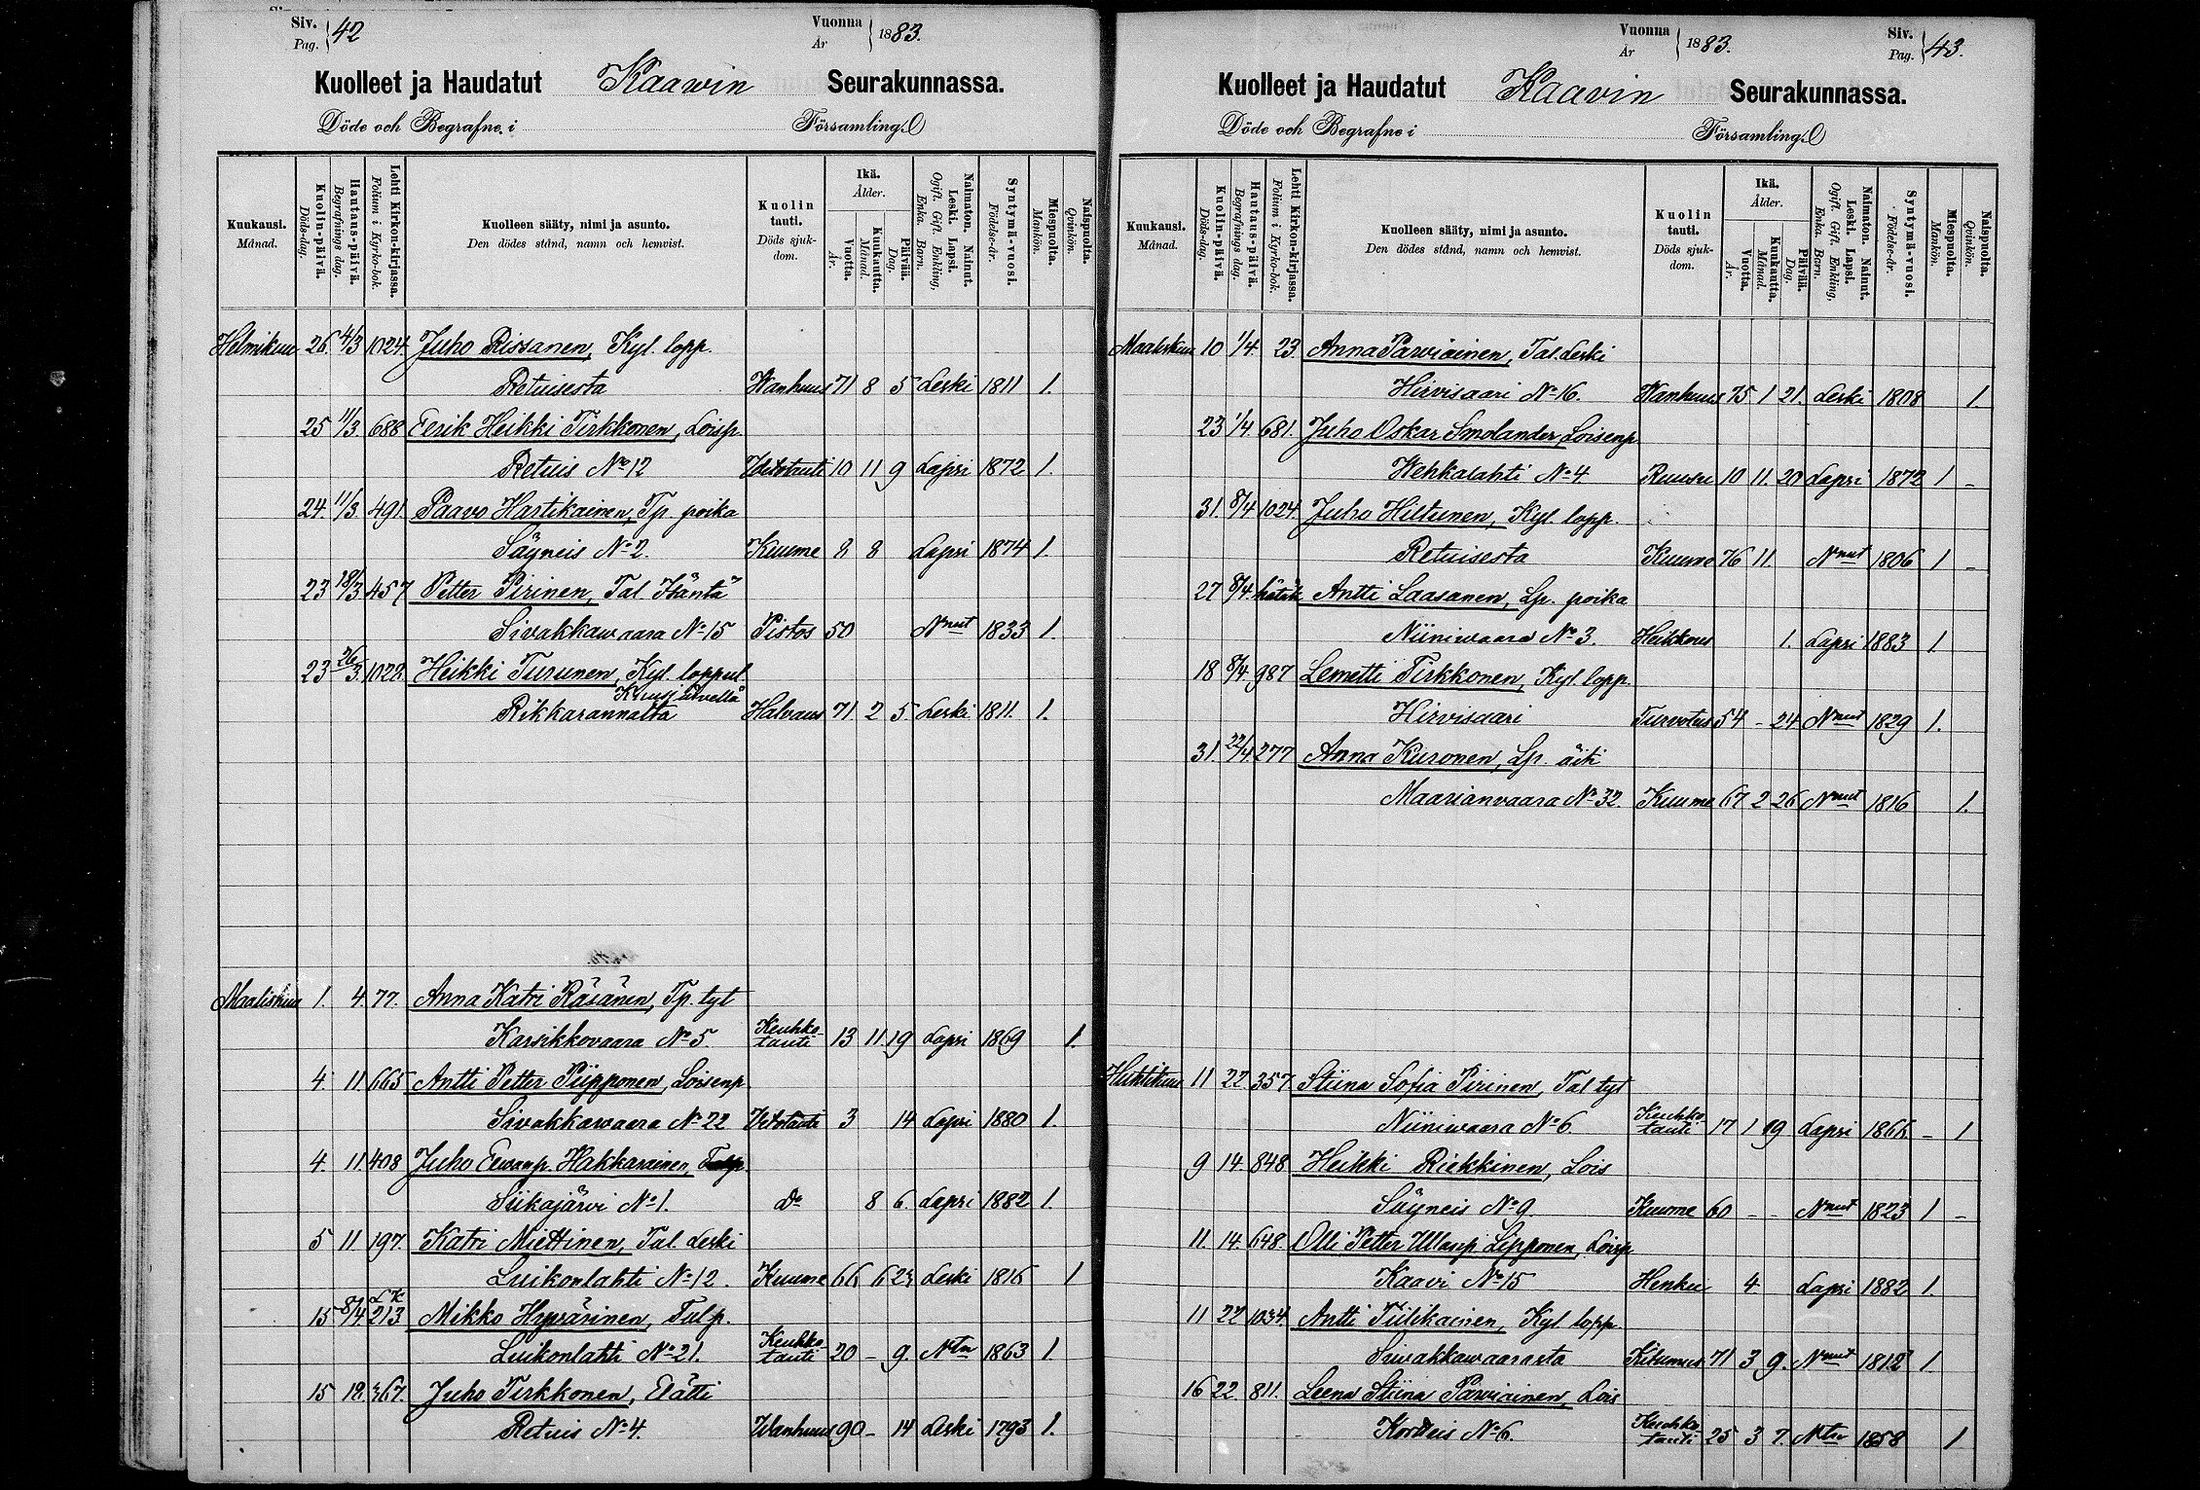 Siv. Pag. 42 Vuonna År 1883.
Kuolleet ja Haudatut Kaawin Seurakunnassa.
Döde och Begrafne i Församling.
Kuukausi. Månad. Kuolin-päivä. Döds-dag. Hautaus-päivä. Begrafnings dag. Lehti Kirkon-kirjassa. Folium i Kyrko-bok. Kuolleen sääty, nimi ja asunto. Den dödes stånd, namn och hemvist. Kuolin tauti. Döds sjukdom. Ikä. Ålder. Vuotta. År. Kuukautta. Månad. Päivää. Dag. Naimaton. Nainut. Leski. Lapsi. Ogift. Gift. Enkling, Enka. Barn. Syntymä-vuosi. Födelse-år. Miespuolta. Mankön. Naispuolta. Qvinkön.
Helmikuu 26. 4/3 1024 Juho Rissanen, Kyl. lopp.
Retuisesta Wanhuus 71 8 5 Leski 1811 1.
25 11/3. 688 Eerik Heikki Tirkkonen, Loisp.
Retuis No 12 10 11 9 Lapsi 1872 1.
24. 11/3. 491 Paavo Hartikainen, Tp. poika
Säyneis No 2. Kuume 8 8 Lapsi 1874 1.
23 18/3 457 Petter Pirinen, Tal. Isäntä
Sivakkawaara No 15 Pistos 50 Nnut 1833 1.
23 26/3. 1028 Heikki Turunen, Kyl. loppul.
Kuusjärvellä
Rikkarannalta Halvaus 71 2 5 Leski 1811. 1.
Maaliskuu 1. 4. 77. Anna Katri Räsänen, Tp. tyt
Karsikkovaara No 5. Keuhkotauti 13 11 19 Lapsi 1869 1.
4 11 665 Antti Petter Piipponen, Loisenp
Sivakkawaara No 22 Vetotauti 3 14 Lapsi 1880 1.
4 11 408 Juho Eewanp. Hakkarainen,
Siikajärvi No 1. do 8 6. Lapsi 1882 1.
5 11 197. Katri Miettinen, Tal. Leski
Luikonlahti No 12. Kuume 66 6 Leski 1816 1
15 8/4 213 Mikko Hyvärinen, Talp.
Luikonlahti No 21. Keuhkotauti 20 - 9. Ntn 1863 1.
15 18. 367. Juho Tirkkonen, Elätti
Retuis No 4. Wanhuus 90 - 14 Leski 1793 1.
Vuonna År 1883. Siv. Pag. 43.
Kuolleet ja Haudatut Kaavin Seurakunnassa.
Döde och Begrafne i Församling.
Kuukausi. Månad. Kuolin-päivä. Döds-dag. Hautaus-päivä. Begrafnings dag. Lehti Kirkon-kirjassa. Folium i Kyrko-bok. Kuolleen sääty, nimi ja asunto. Den dödes stånd, namn och hemvist. Kuolin tauti. Döds sjukdom. Ikä. Ålder. Vuotta. År. Kuukautta. Månad. Päivää. Dag. Naimaton. Nainut. Leski. Lapsi. Ogift. Gift. Enkling, Enka. Barn. Syntymä-vuosi. Födelse-år. Miespuolta. Mankön. Naispuolta. Qvinkön.
Maaliskuu 10 1/4 23 Anna Parviainen, Tal. Leski
Hirvisaari No 16. Wanhuus 75 1 21. Leski 1808 1.
23 1/4. 681. Juho Oskar Smolander, Loisenp
Wehkalahti No 4 Ruusu 10 11. 20 Lapsi 1872 1 -
31. 8/4 1024. Juho Hiltunen, Kyl. lopp.
Retuisesta Kuume 76 11. Nnut 1806 1 -
27 8/4. Antti Laasanen, Lp. poika
Niiniwaara No 3. Heikkous 1. Lapsi 1883 1
18 8/4. 987 Lemetti Tirkkonen, Kyl. lopp.
Hirvisaari Turvotus 54 - 24 Nnut 1829 1.
31. 22/4 277 Anna Kuronen, Lp. äiti
Maarianvaara No 32 Kuume 67 2 26 Nnut 1816 1.
Huhtikuu 11 22 357. Stiina Sofia Pirinen, Tal tyt
Niiniwaara No 6. Keuhkotauti 17 1 19 Lapsi 1866 - 1
9 14. 848. Heikki Riekkinen, Lois
Säyneis No 9. Kuume 60 - - Nnut 1823 1 -
11. 14. 648. Olli Petter Ullanp Lipponen, Loisp
Kaavi No 15 Henkii 4 Lapsi 1882 1.
11 22 1034. Antti Tiilikainen, Kyl. lopp.
Siivakkawaarasta Kitumus 71 3 9. Nnut 1812 1
16 22. 811. Leena Stiina Parviainen, Lois
Kordeis No 6. Keuhkotauti 25 3 7. Ntn 1858 1